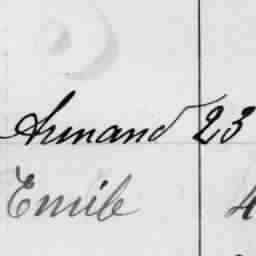 Armand 23
Emile 4